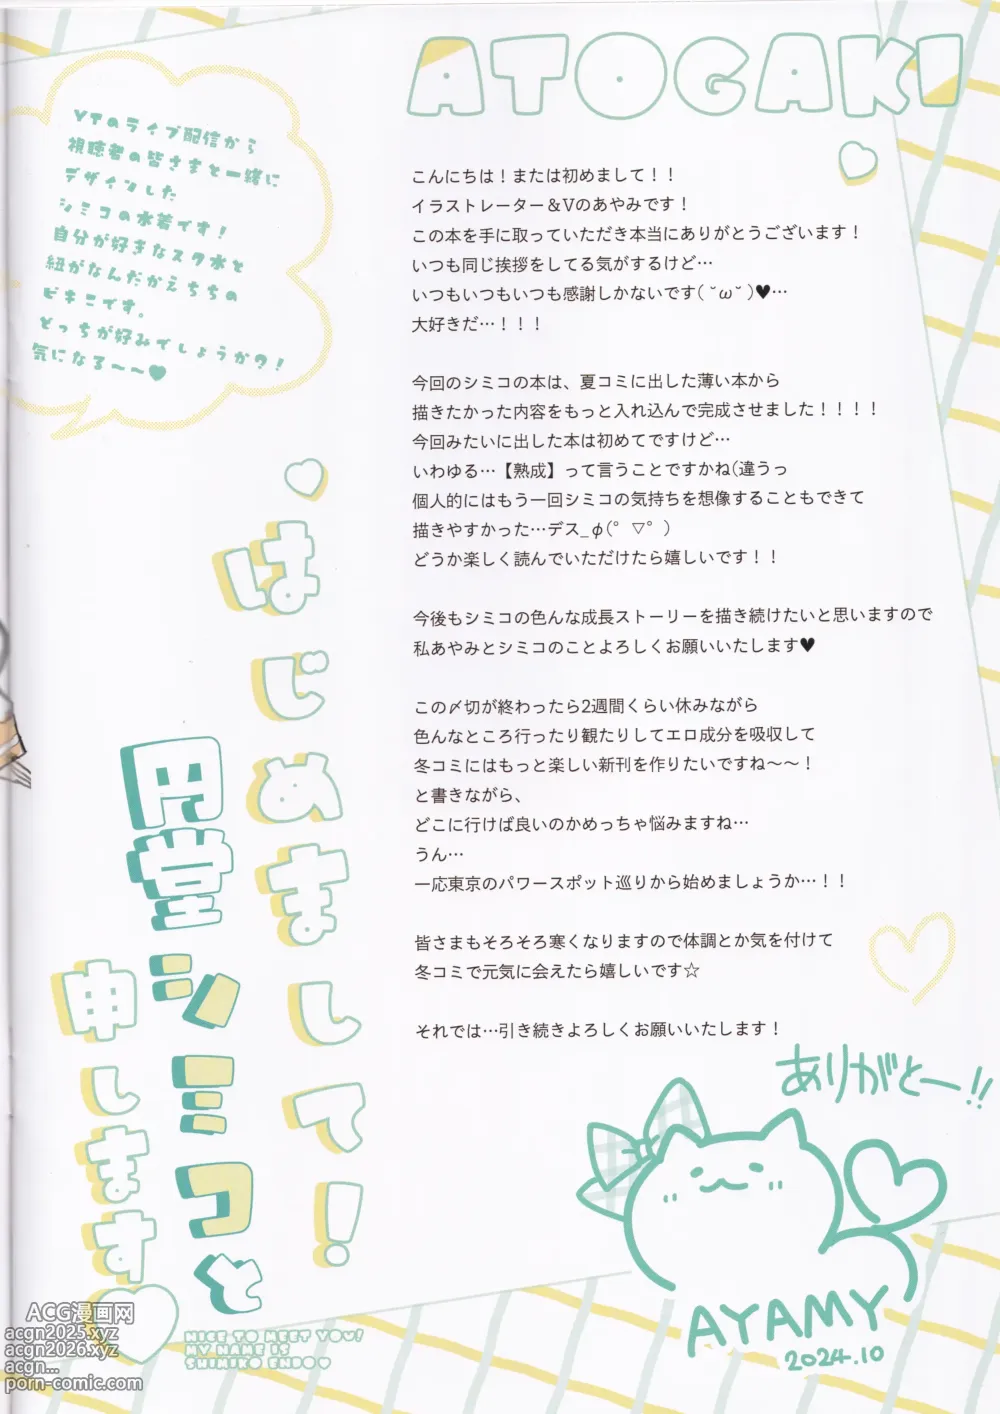 ATOGAKI
YTのライブ配信から
視聴者の皆さまと一緒に
デザインした
シミコの水着です!
自分が好きなスク水と
紐がなんだかえちちの
ビキニです。
どっちが好みでしょうか?!
気になる〜〜♥
こんにちは!または初めまして!!
イラストレーター&Vのあやみです!
この本を手に取っていただき本当にありがとうございます!
いつも同じ挨拶をしてる気がするけど…
いつもいつもいつも感謝しかないです(˘ω˘)♥…
大好きだ…!!!
今回のシミコの本は、夏コミに出した薄い本から
描きたかった内容をもっと入れ込んで完成させました!!!!
今回みたいに出した本は初めてですけど…
いわゆる…【熟成】って言うことですかね(違うっ
個人的にはもう一回シミコの気持ちを想像することもできて
描きやすかった…デス_φ(°▽°)
どうか楽しく読んでいただけたら嬉しいです!!
今後もシミコの色んな成長ストーリーを描き続けたいと思いますので
私あやみとシミコのことよろしくお願いいたします♥
この〆切が終わったら2週間くらい休みながら
色んなところ行ったり観たりしてエロ成分を吸収して
冬コミにはもっと楽しい新刊を作りたいですね〜〜!
と書きながら、
どこに行けば良いのかめっちゃ悩みますね…
うん…
一応東京のパワースポット巡りから始めましょうか…!!
皆さまもそろそろ寒くなりますので体調とか気を付けて
冬コミで元気に会えたら嬉しいです☆
それでは…引き続きよろしくお願いいたします!
はじめまして!
円堂シミコと
申します♡
NICE TO MEET YOU!
MY NAME IS
SHIMIKO ENDO♥
ありがとー!!
AYAMY
2024.10
ACG漫画网
acgn2025.xyz
acgn2026.xyz
acgn...
porn-comic.com